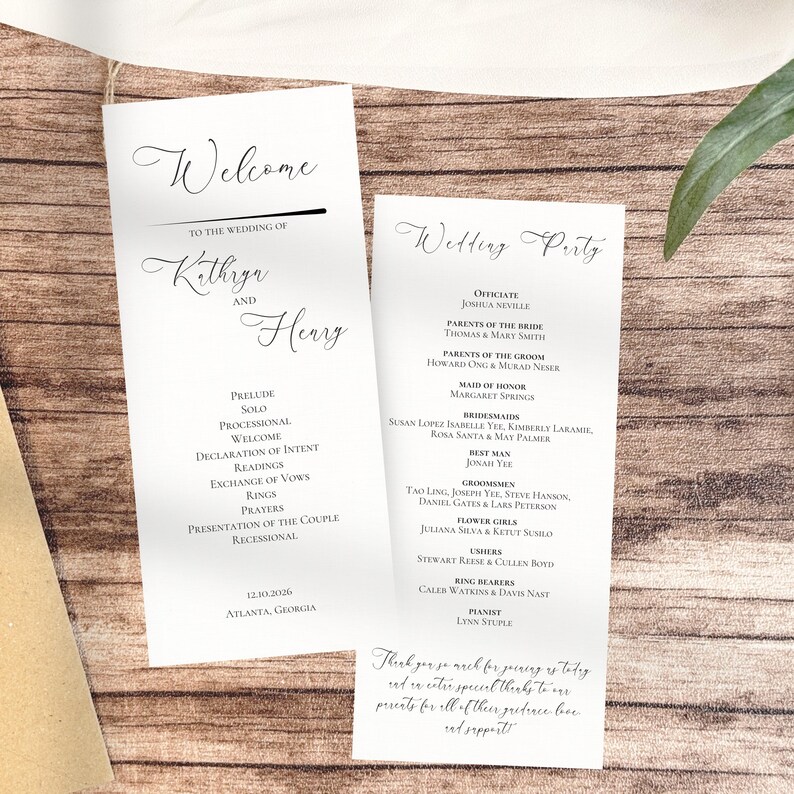 Welcome
TO THE WEDDING OF
Kathryn
AND
Henry
PRELUDE
SOLO
PROCESSIONAL
WELCOME
DECLARATION OF INTENT
READINGS
EXCHANGE OF VOWS
RINGS
PRAYERS
PRESENTATION OF THE COUPLE
RECESSIONAL
12.10.2026
ATLANTA, GEORGIA
Wedding Party
OFFICIATE
JOSHUA NEVILLE
PARENTS OF THE BRIDE
THOMAS & MARY SMITH
PARENTS OF THE GROOM
HOWARD ONG & MURAD NESER
MAID OF HONOR
MARGARET SPRINGS
BRIDESMAIDS
SUSAN LOPEZ ISABELLE YEE, KIMBERLY LARAMIE,
ROSA SANTA & MAY PALMER
BEST MAN
JONAH YEE
GROOMSMEN
TAO LING, JOSEPH YEE, STEVE HANSON,
DANIEL GATES & LARS PETERSON
FLOWER GIRLS
JULIANA SILVA & KETUT SUSILO
USHERS
STEWART REESE & CULLEN BOYD
RING BEARERS
CALEB WATKINS & DAVIS NAST
PIANIST
LYNN STUPLE
Thank you so much for joining us today
and an extra special thanks to our
parents for all of their guidance, love,
and support!